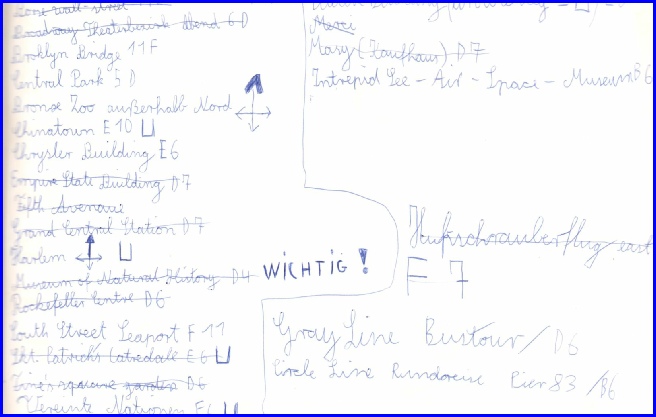 Broadway Theaterbezirk Abend 6 D
Brooklyn Bridge 11 F
Central Park 5 D
Bronxe Zoo außerhalb Nord
Chinatown E 10 U
Chrysler Building E6
Empire State Building D7
Fifth Avenue
Grand Central Station D7
Harlem U
Museum of Natural History D4
Rockefeller Centre D6
South Street Seaport F 11
Skt. Patricks Catredale E 6 U
Time square D6
Vereinte Nationen
Macy (Kaufhaus) D7
Intrepid See - Air - Space - Museum B6
WICHTIG!
Hubschrauberflug/east
F 7
Gray Line Bustour/D6
Circle Line Rundreise Pier 83/B6